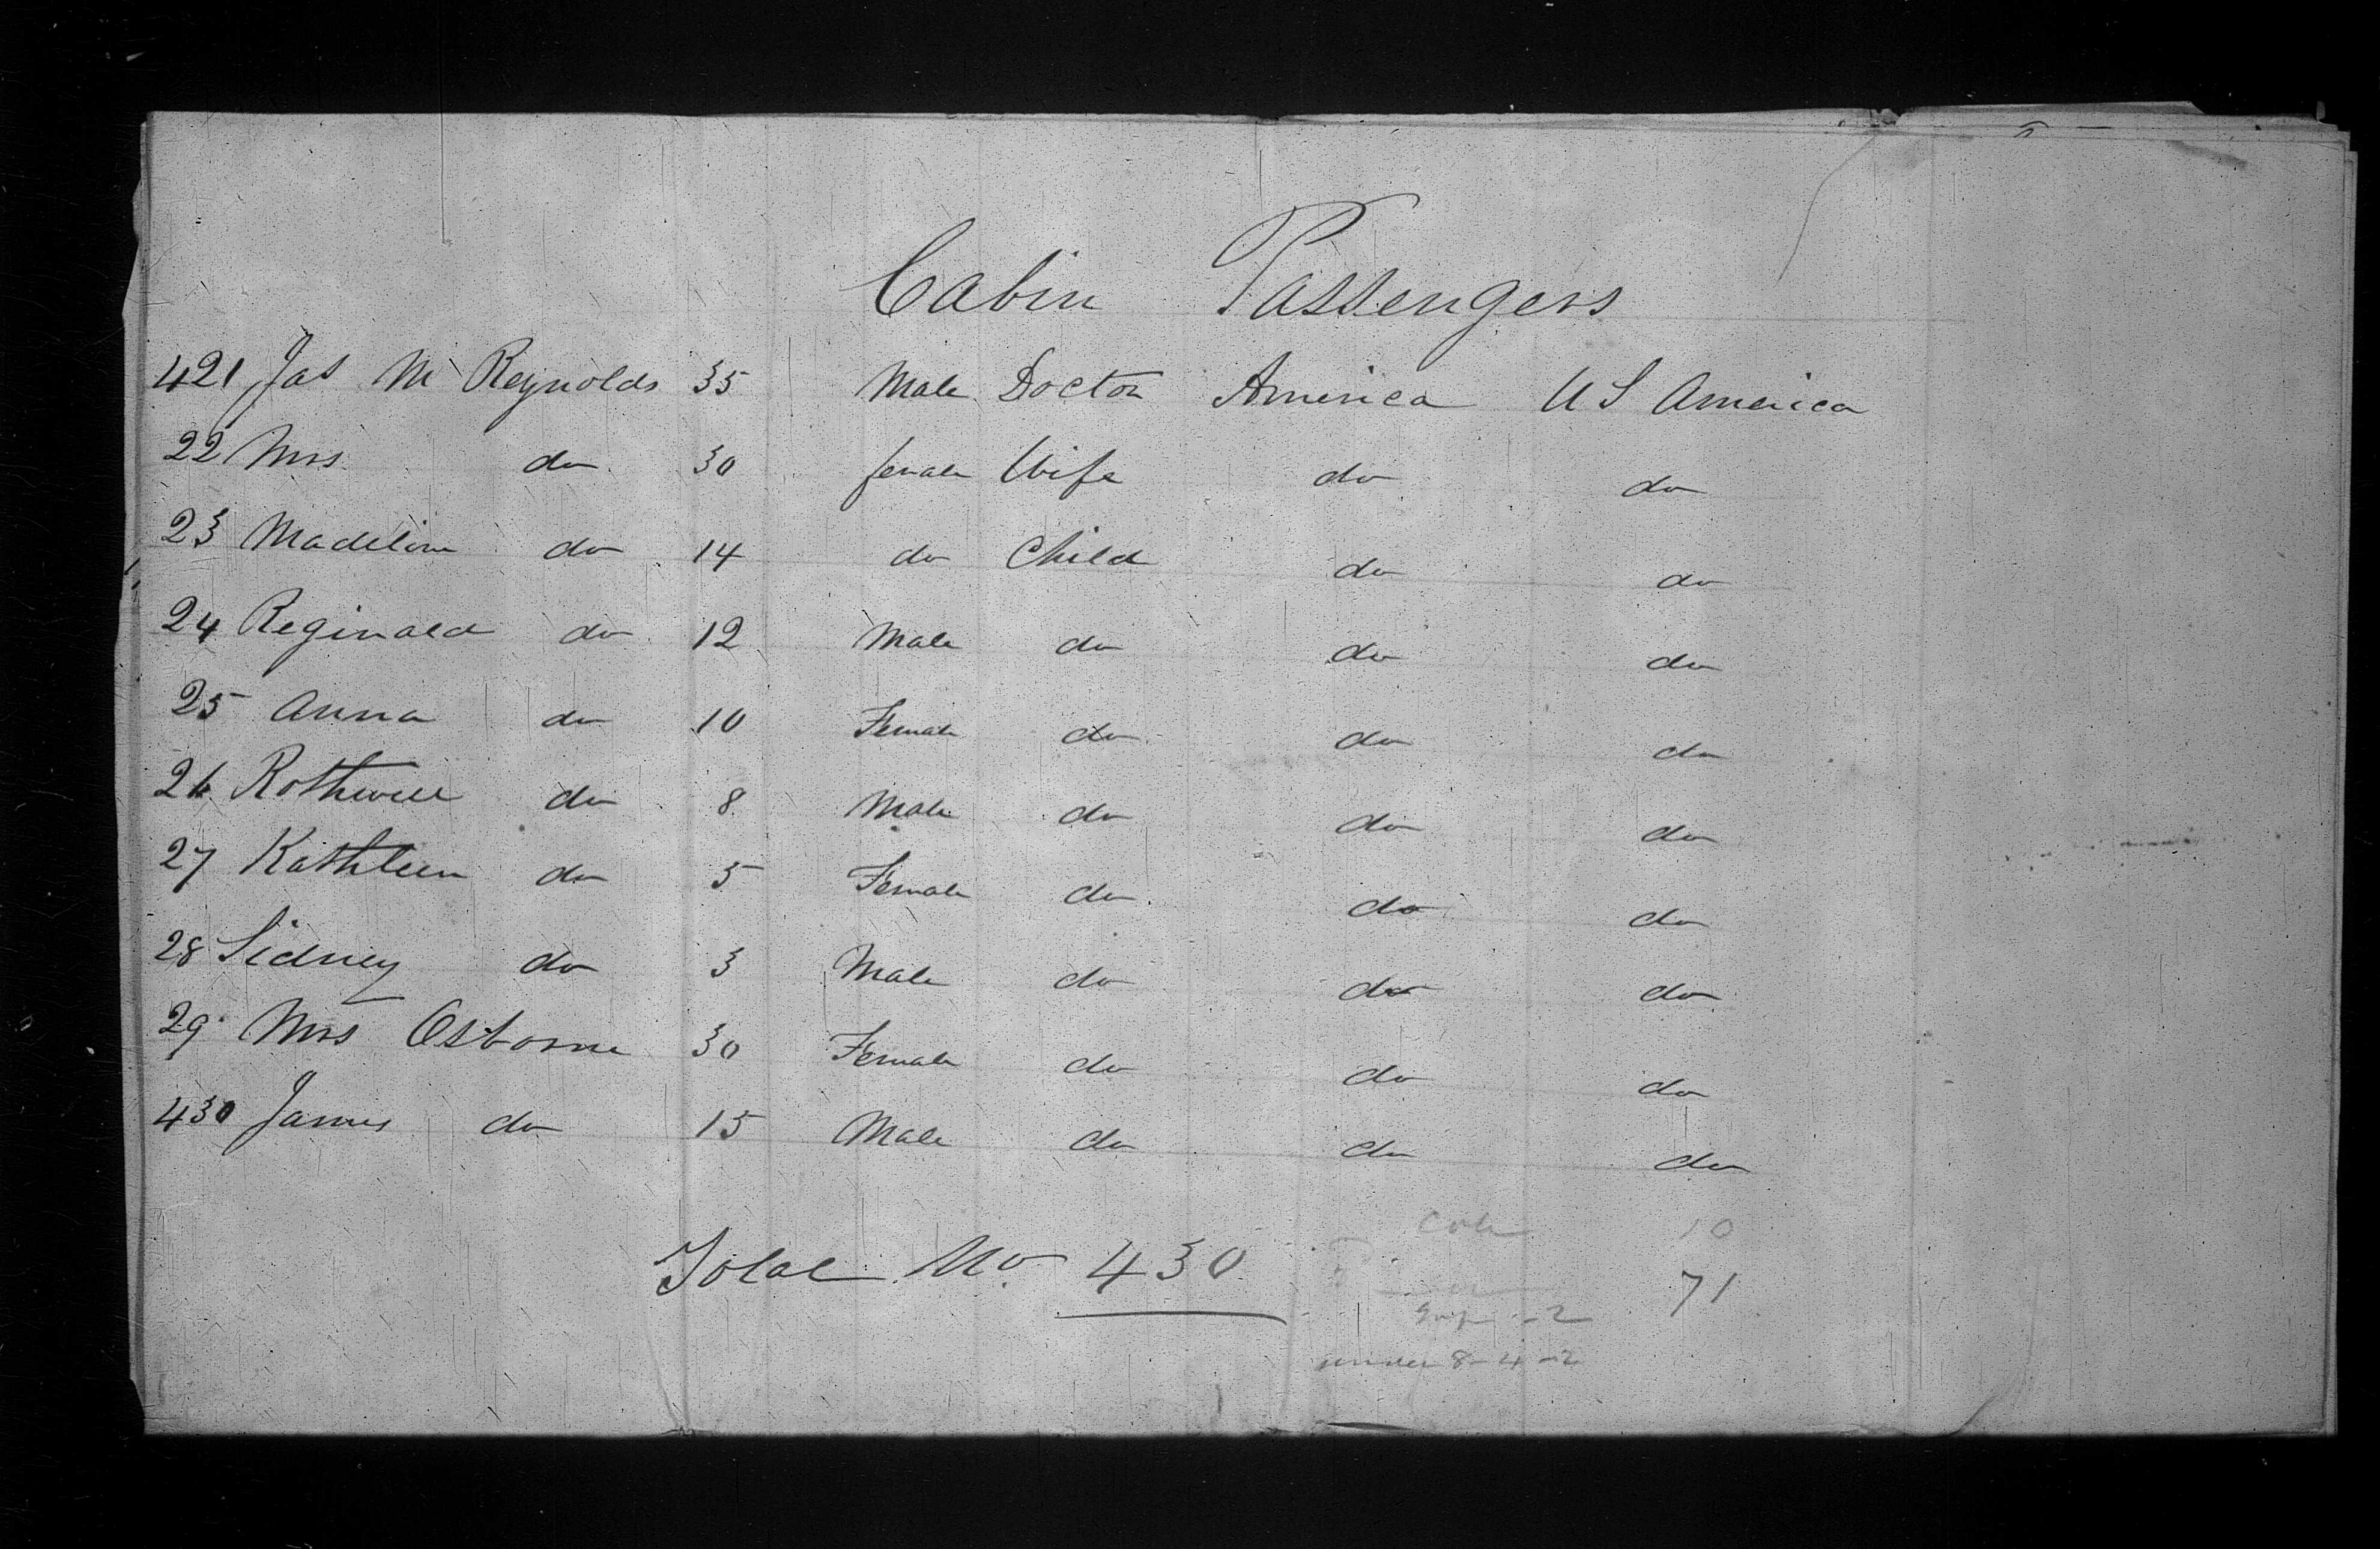 Cabin Passengers
421 Jas M Reynolds 35 Male Doctor America U S America
22 Mrs do 30 female Wife do do
23 Madeline do 14 do Child do do
24 Reginald do 12 Male do do do
25 Anna do 10 Female do do do
26 Rothwell do 8 Male do do do
27 Kathleen do 5 Female do do do
28 Sidney do 3 Male do do do
29 Mrs Osborne 30 Female do do do
430 James do 15 Male do do do
10
Total No 430
71
- 2
under 8 - 4 - 2